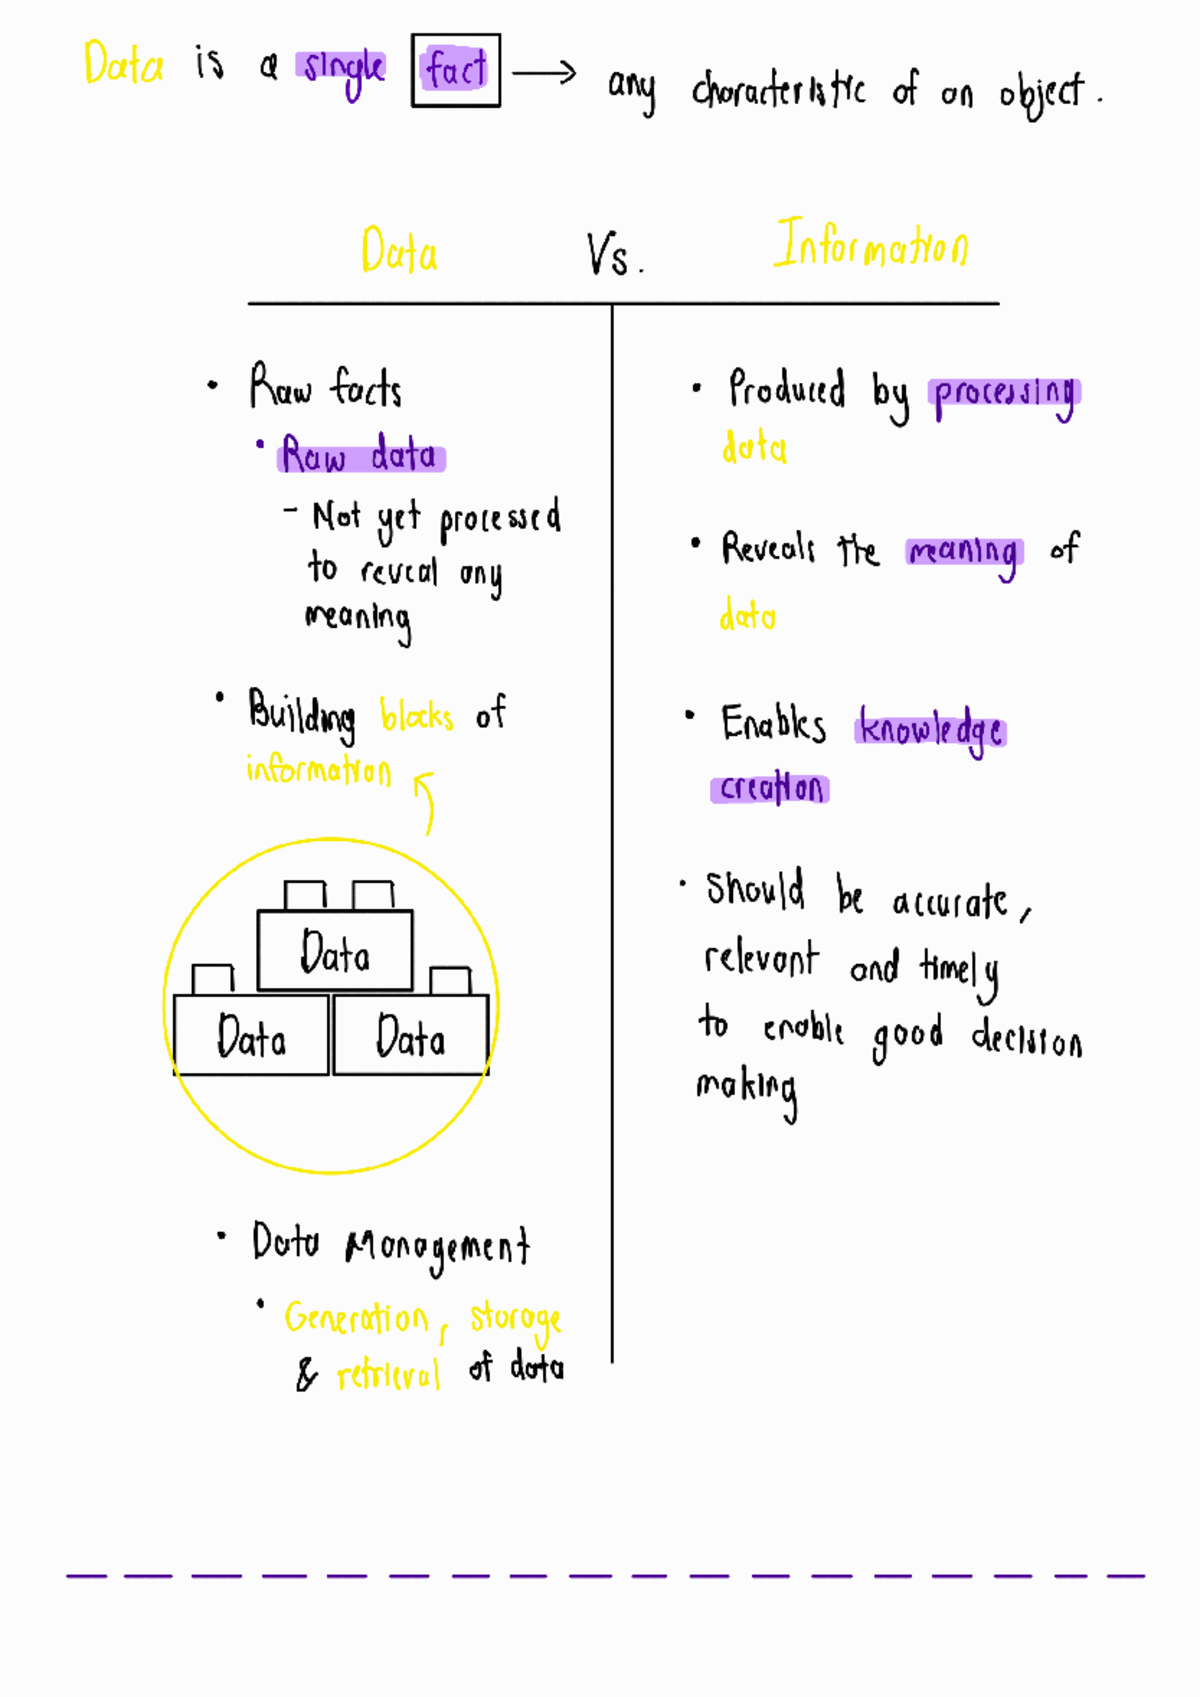 Data is a single fact → any characteristic of an object.
Data Vs. Information
• Raw facts
• Raw data
- Not yet processed
to reveal any
meaning
• Building blocks of
information
Data
Data Data
• Data Management
• Generation, storage
& retrieval of data
• Produced by processing
data
• Reveals the meaning of
data
• Enables knowledge
creation
• should be accurate,
relevant and timely
to enable good decision
making